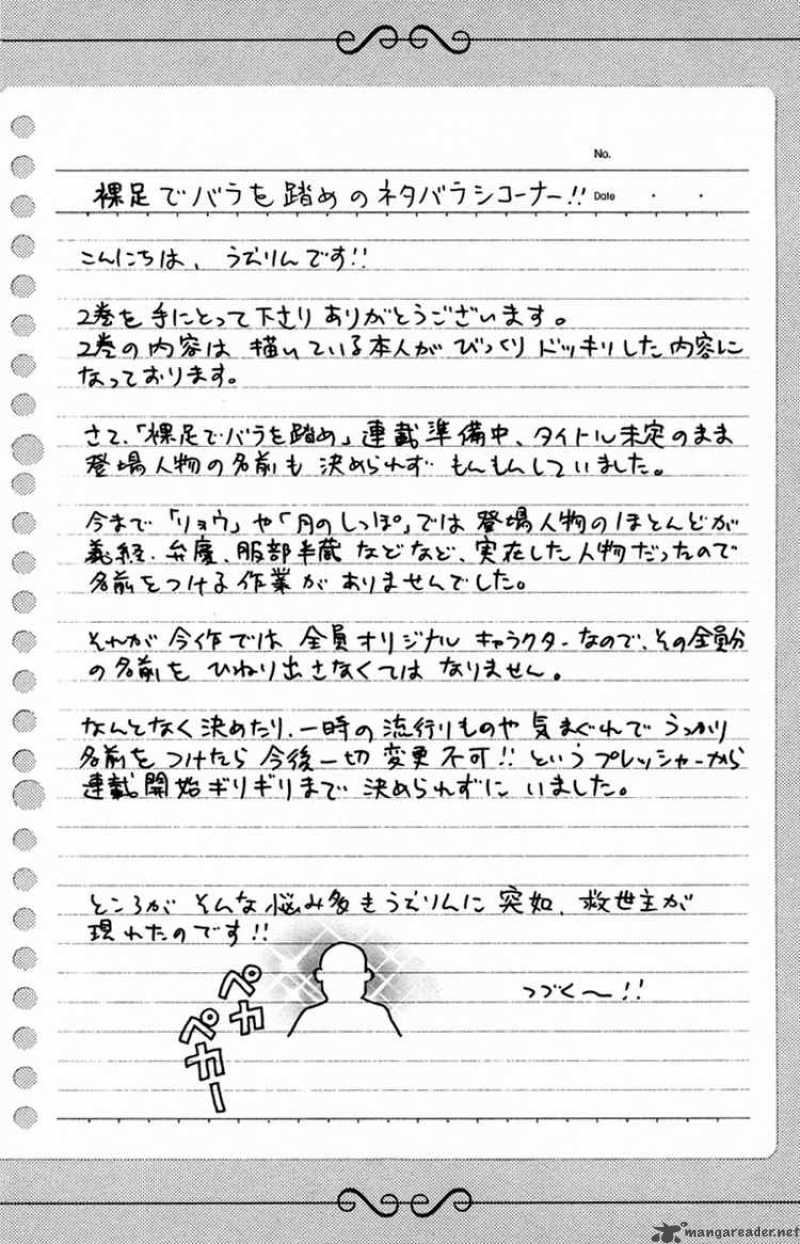 No.
裸足でバラを踏めのネタバラシコーナー!!
Date ・ ・
こんにちは、うえりんです!!
2巻を手にとって下さりありがとうございます。
2巻の内容は描いている本人がびっくりドッキリした内容に
なっております。
さて、「裸足でバラを踏め」連載準備中、タイトル未定のまま
登場人物の名前も決められずもんもんしていました。
今まで「リョウ」や「月のしっぽ」では登場人物のほとんどが
義経、弁慶、服部半蔵などなど、実在した人物だったので
名前をつける作業がありませんでした。
それが今作では全員オリジナルキャラクターなので、その全員分
の名前をひねり出さなくてはなりません。
なんとなく決めたり、一時の流行りものや気まぐれでうっかり
名前をつけたら今後一切変更不可!!というプレッシャーから
連載開始ギリギリまで決められずにいました。
ところがそんな悩み多きうえりんに突如、救世主が
現れたのです!!
ペカ
ペカー
つづく〜!!
mangareader.net